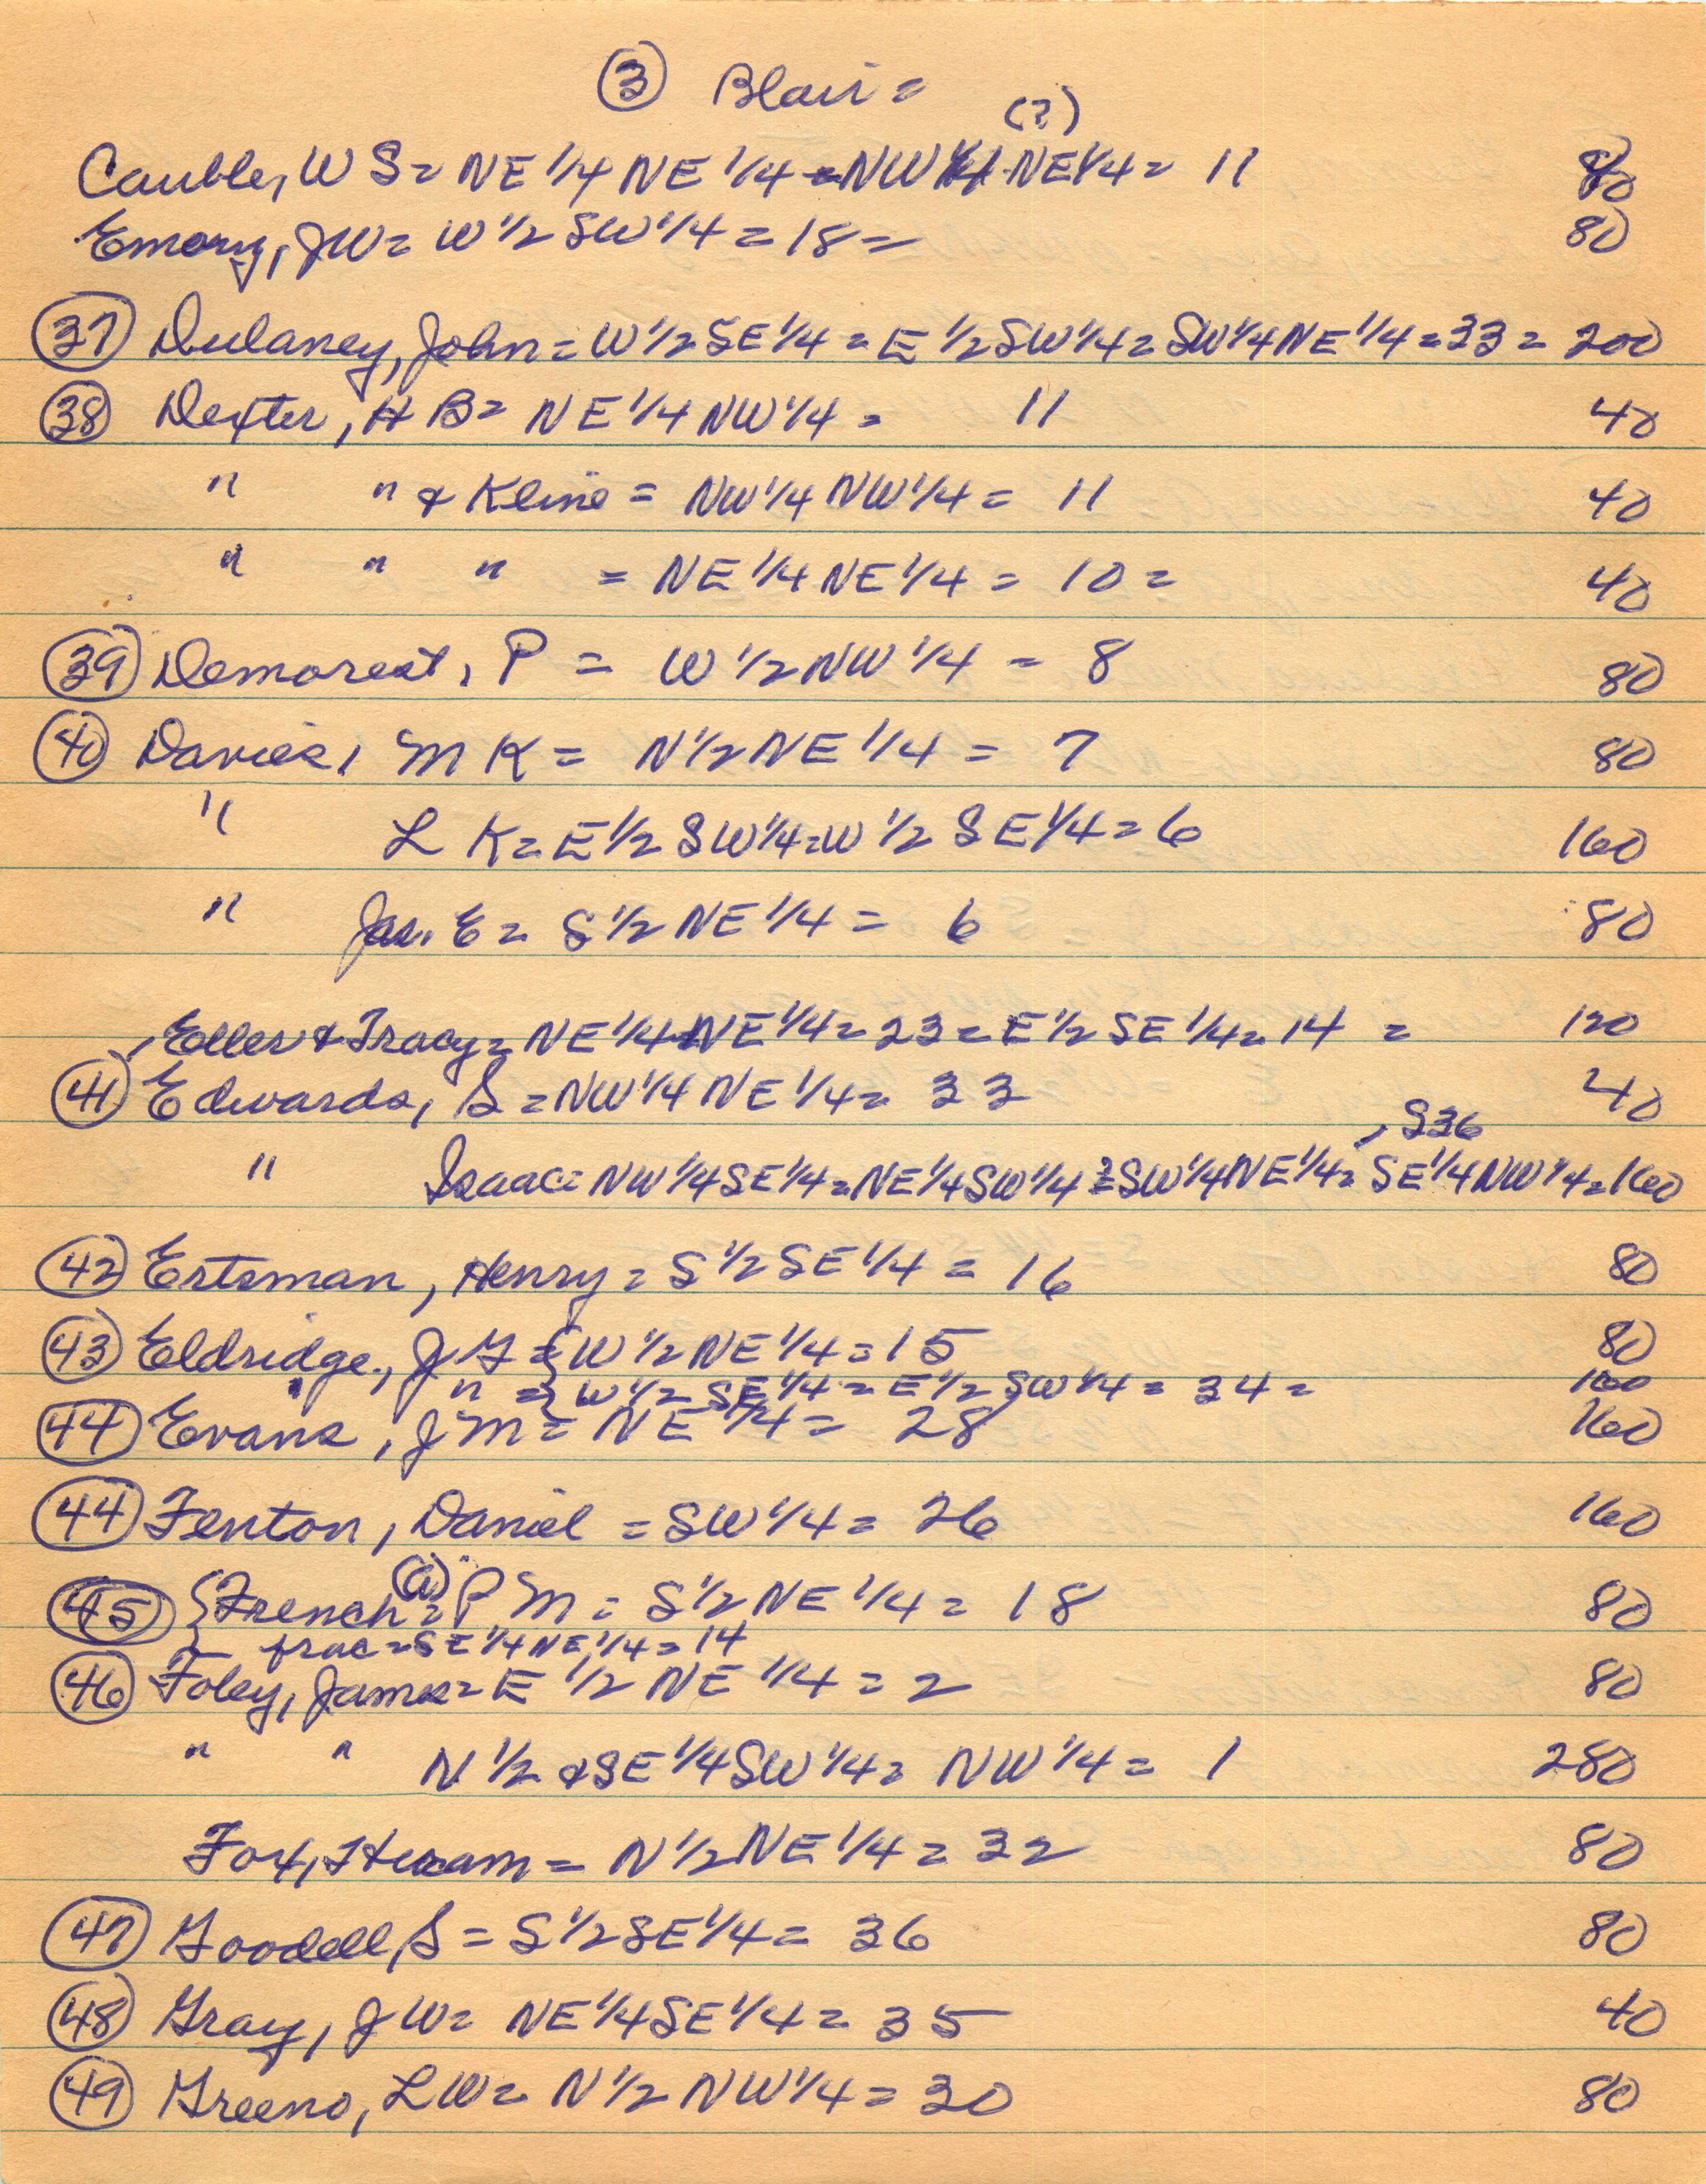 ③ Blair =
(?)
Cauble, W S = NE 1/4 NE 1/4 = NW 1/4 NE 1/4 = 11 80
Emory, JW = W 1/2 SW 1/4 = 18 = 80
(37) Dulaney, John = W 1/2 SE 1/4 = E 1/2 SW 1/4 = SW 1/4 NE 1/4 = 33 = 200
(38) Dexter, H B = NE 1/4 NW 1/4 = 11 40
" " & Kline = NW 1/4 NW 1/4 = 11 40
" " " = NE 1/4 NE 1/4 = 10 = 40
(39) Demorest, P = W 1/2 NW 1/4 = 8 80
(40) Davies, M K = N 1/2 NE 1/4 = 7 80
" L K = E 1/2 SW 1/4 = W 1/2 SE 1/4 = 6 160
" Jas. E = S 1/2 NE 1/4 = 6 80
Eller & Tracy = NE 1/4 NE 1/4 = 23 = E 1/2 SE 1/4 = 14 = 120
(41) Edwards, S = NW 1/4 NE 1/4 = 33 40
, S36
" Isaac = NW 1/4 SE 1/4 = NE 1/4 SW 1/4 = SW 1/4 NE 1/4 = SE 1/4 NW 1/4 = 160
(42) Ertsman, Henry = S 1/2 SE 1/4 = 16 80
(43) Eldridge, J G = { W 1/2 NE 1/4 = 15 80
" " = { W 1/2 SE 1/4 = E 1/2 SW 1/4 = 34 = 160
(44) Evans, J M = NE 1/4 = 28 160
(44) Fenton, Daniel = SW 1/4 = 26 160
(45) { French (a) = P M = S 1/2 NE 1/4 = 18 80
frac = SE 1/4 NE 1/4 = 14
(46) Foley, James = E 1/2 NE 1/4 = 2 80
" " N 1/2 & SE 1/4 SW 1/4 = NW 1/4 = 1 280
Fox, Hiram = N 1/2 NE 1/4 = 32 80
(47) Goodell, S = S 1/2 SE 1/4 = 36 80
(48) Gray, J W = NE 1/4 SE 1/4 = 35 40
(49) Greeno, L W = N 1/2 NW 1/4 = 30 80